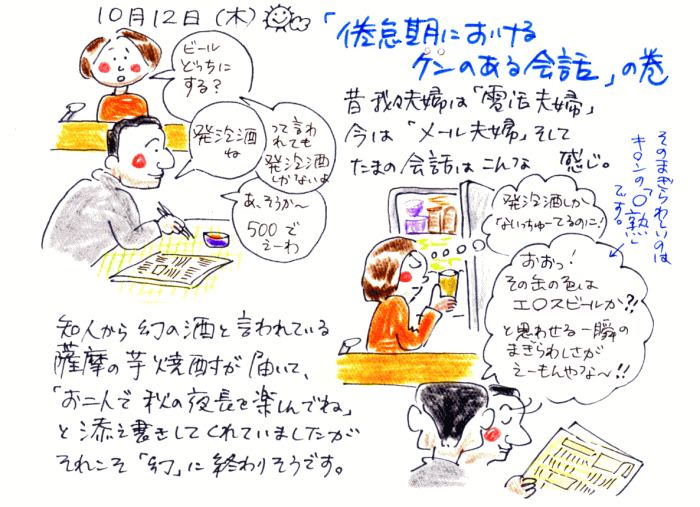 10月12日(木)
「倦怠期における
ゲンのある会話」の巻
ビール
どっちに
する？
発泡酒
ね
って言わ
れても
発泡酒
しかないよ
あ、そうか〜
500で
えーわ
昔我々夫婦は「電話夫婦」
今は「メール夫婦」そして
たまの会話はこんな感じ。
発泡酒しか
ないっちゅーてるのに！
おおっ！
その缶の色は
エ〇スビールか?!
と思わせる一瞬の
まぎらわしさが
えーもんやな〜!!
そのまぎらわしいのは
キ〇ンの「〇熟」
です。
知人から幻の酒と言われている
薩摩の芋焼酎が届いて、
「お二人で秋の夜長を楽しんでね」
と添え書きしてくれていましたが
それこそ「幻」に終わりそうです。